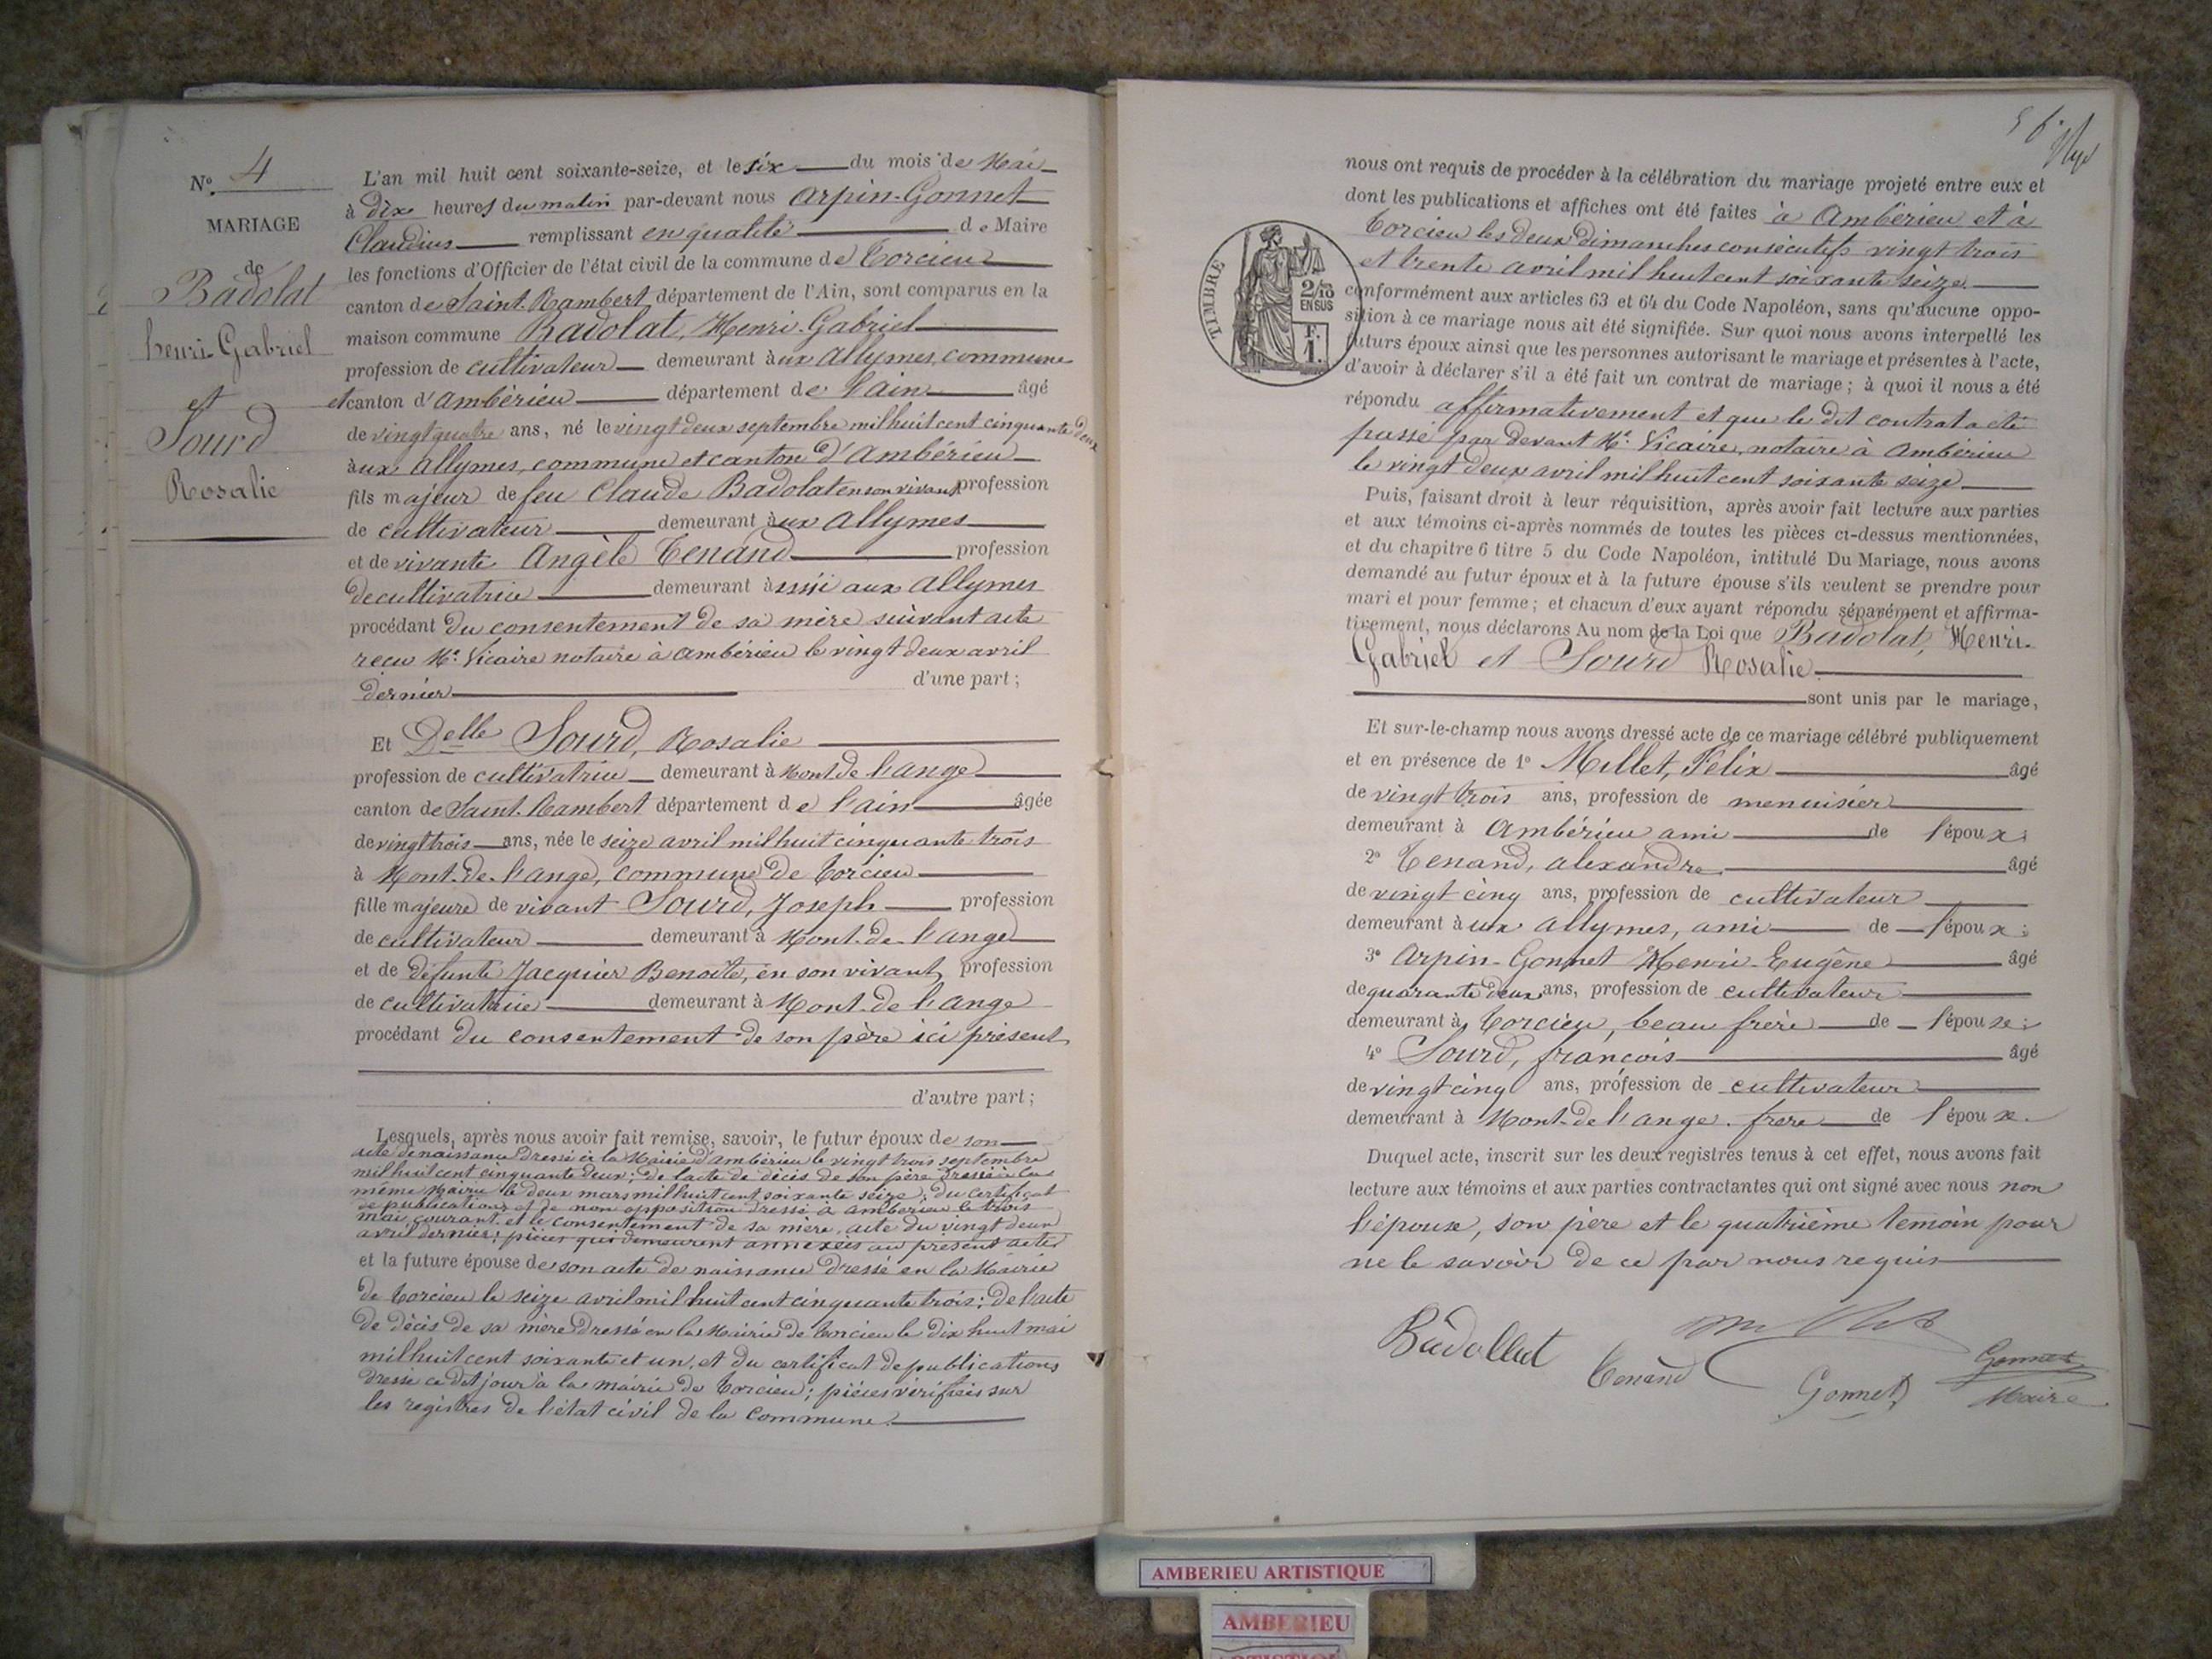 N.º 4
MARIAGE
de
Badolat
henri-Gabriel
et
Sourd
Rosalie
L'an mil huit cent soixante-seize, et le six du mois de Mai
à dix heures du matin par-devant nous Arpin-Gonnet
Claudius remplissant en qualité de Maire
les fonctions d'Officier de l'état civil de la commune de Torcieu
canton de Saint-Rambert département de l'Ain, sont comparus en la
maison commune Badolat, Henri-Gabriel
profession de cultivateur demeurant aux Allymes, commune
et canton d'Ambérieu département de l'ain âgé
de vingt quatre ans, né le vingt deux septembre mil huit cent cinquante deux
aux Allymes, commune et canton d'Ambérieu
fils majeur de feu Claude Badolat en son vivant profession
de cultivateur demeurant aux Allymes
et de vivante Angèle Tenand profession
de cultivatrice demeurant aussi aux Allymes
procédant du consentement de sa mère suivant acte
reçu Me. Vicaire notaire à Ambérieu le vingt deux avril
dernier d'une part;
Et Delle Sourd, Rosalie
profession de cultivatrice demeurant à Mont-de-l'ange
canton de Saint-Rambert département de l'ain âgée
de vingt trois ans, née le seize avril mil huit cinquante trois
à Mont-de-l'ange, commune de Torcieu
fille majeure de vivant Sourd, Joseph profession
de cultivateur demeurant à Mont-de-l'ange
et de défunte Jacquier Benoite, en son vivant profession
de cultivatrice demeurant à Mont-de-l'ange
procédant du consentement de son père ici présent
d'autre part;
Lesquels, après nous avoir fait remise, savoir, le futur époux de son
acte de naissance dressé à la Mairie d'ambérieu le vingt trois septembre
mil huit cent cinquante deux; de l'acte de décès de son père dressé à la
même Mairie le deux mars mil huit cent soixante seize; du certificat
de publications et de non opposition dressé à ambérieu le trois
mai courant et le consentement de sa mère, acte du vingt deux
avril dernier; pièces qui demeurent annexées au présent acte
et la future épouse de son acte de naissance dressé en la Mairie
de Torcieu le seize avril mil huit cent cinquante trois; de l'acte
de décès de sa mère dressé en la Mairie de Torcieu le dix huit mai
mil huit cent soixante et un, et du certificat de publications
dressé ce dit jour à la mairie de Torcieu; pièces vérifiées sur
les registres de l'état civil de la commune.
nous ont requis de procéder à la célébration du mariage projeté entre eux et
dont les publications et affiches ont été faites à Ambérieu et à
Torcieu les deux dimanches consécutifs vingt trois
et trente avril mil huit cent soixante seize
TIMBRE
2/10
EN SUS
F.
1.
conformément aux articles 63 et 64 du Code Napoléon, sans qu'aucune oppo-
sition à ce mariage nous ait été signifiée. Sur quoi nous avons interpellé les
futurs époux ainsi que les personnes autorisant le mariage et présentes à l'acte,
d'avoir à déclarer s'il a été fait un contrat de mariage; à quoi il nous a été
répondu affirmativement et que le dit contrat a été
passé par devant Me. Vicaire, notaire à Ambérieu
le vingt deux avril mil huit cent soixante seize
Puis, faisant droit à leur réquisition, après avoir fait lecture aux parties
et aux témoins ci-après nommés de toutes les pièces ci-dessus mentionnées,
et du chapitre 6 titre 5 du Code Napoléon, intitulé Du Mariage, nous avons
demandé au futur époux et à la future épouse s'ils veulent se prendre pour
mari et pour femme; et chacun d'eux ayant répondu séparément et affirma-
tivement, nous déclarons Au nom de la Loi que Badolat, Henri-
Gabriel et Sourd Rosalie
sont unis par le mariage,
Et sur-le-champ nous avons dressé acte de ce mariage célébré publiquement
et en présence de 1º Millet, Félix âgé
de vingt trois ans, profession de menuisier
demeurant à Ambérieu ami de l'époux;
2º Tenand, alexandre âgé
de vingt cinq ans, profession de cultivateur
demeurant aux Allymes, ami de l'époux;
3º Arpin-Gonnet Henri-Eugène âgé
de quarante deux ans, profession de cultivateur
demeurant à Torcieu, beau frère de l'épouse;
4º Sourd, françois âgé
de vingt cinq ans, profession de cultivateur
demeurant à Mont-de-l'ange. frère de l'épouse.
Duquel acte, inscrit sur les deux registres tenus à cet effet, nous avons fait
lecture aux témoins et aux parties contractantes qui ont signé avec nous non
l'épouse, son père et le quatrième témoin pour
ne le savoir de ce par nous requis
Badollat
Tenand
Gonnet
Gonnet
Maire
AMBERIEU ARTISTIQUE
AMBERIEU
ARTISTIQUE